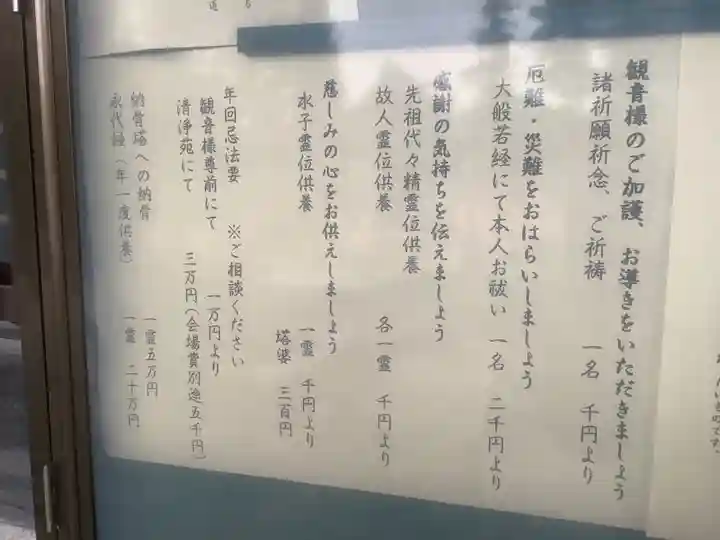 観音様のご加護、お導きをいただきましょう
諸祈願祈念、ご祈祷 一名 千円より
厄難・災難をおはらいしましょう
大般若経にて本人お祓い 一名 二千円より
感謝の気持ちを伝えましょう
先祖代々精霊位供養
故人霊位供養 各一霊 千円より
慈しみの心をお供えしましょう
水子霊位供養 一霊 千円より
塔婆 三百円
年回忌法要 ※ご相談ください
観音様尊前にて 一万円より
清浄苑にて 三万円(会場費別途五千円)
納骨塔への納骨 一霊五万円
永代経(年一度供養) 一霊 二十万円